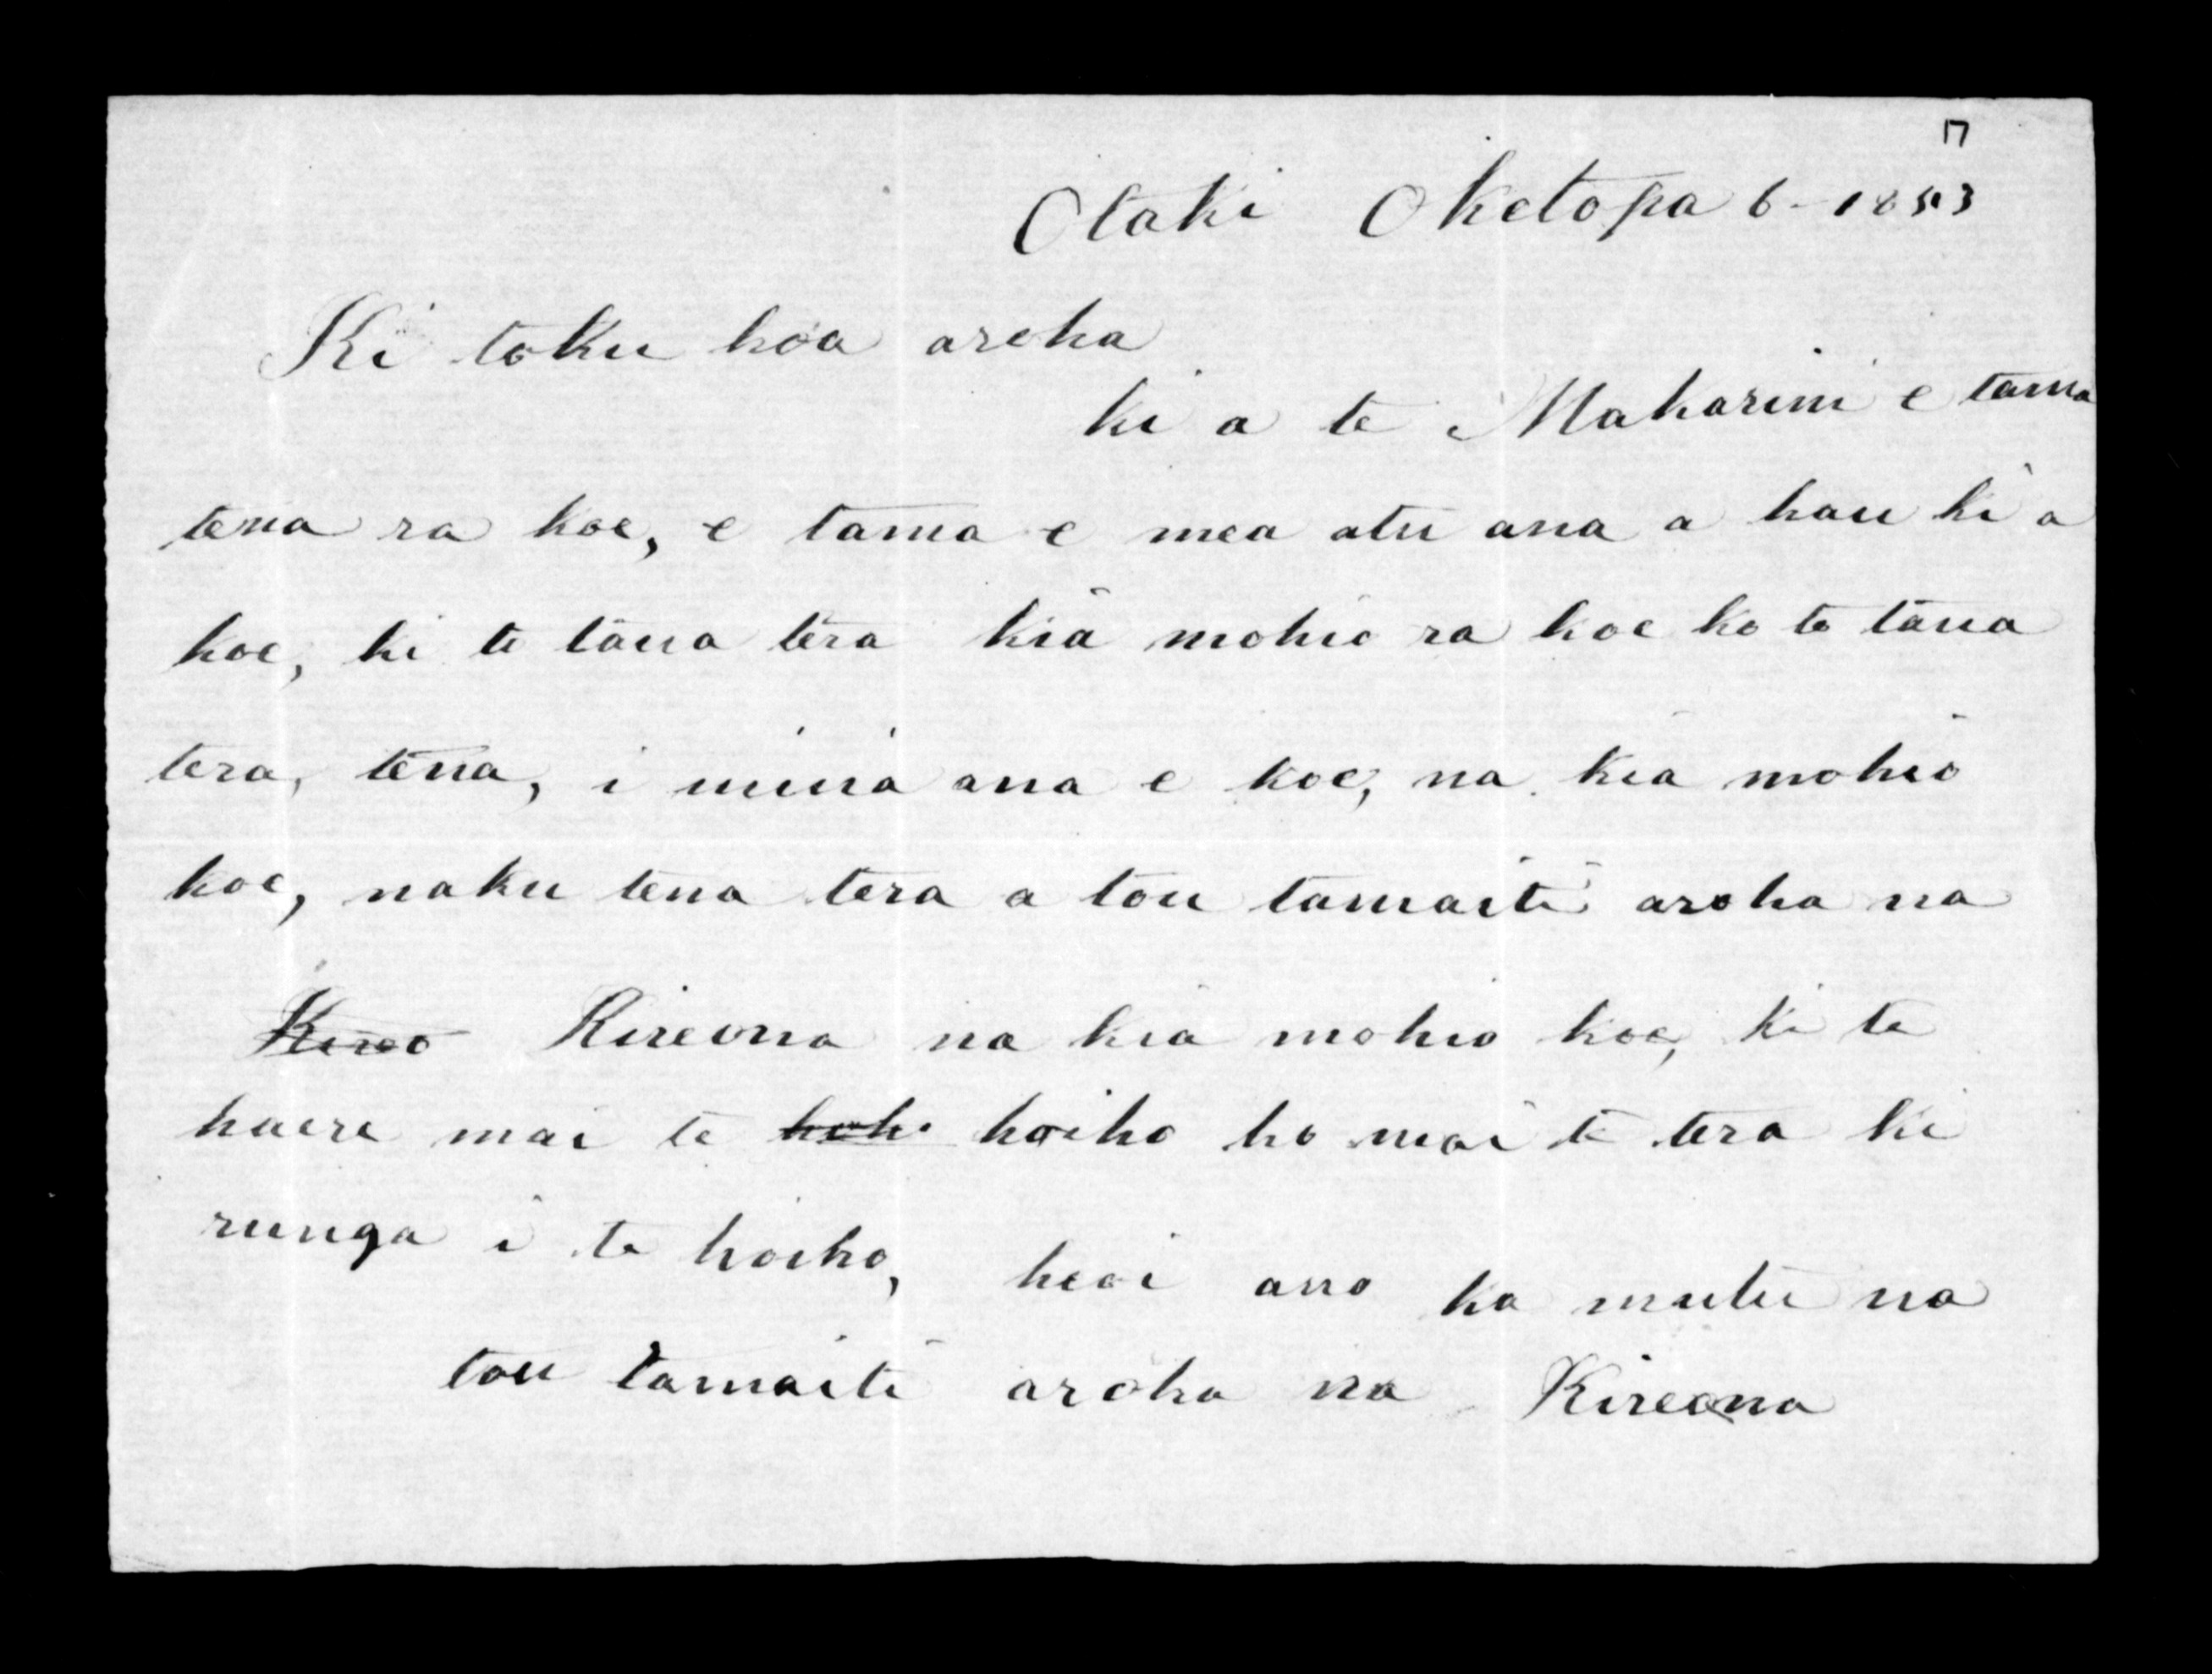 17
Otaki Oketopa 6 - 1853
Ki toku hoa aroha
ki a te Makarini e tama
tena ra koe, e tama e mea atu ana a hau ki a
koe, ki te taua tera kia mohio ra koe ko te taua
tera, tena, i mina ana e koe, na kia mohio
koe, naku tena tera a tou tamaiti aroha na
Kireo Kireona na kia mohio koe, ki te
haere mai te hoh hoiho ho mai te tera ki
runga i te hoiho, heoi ano ka mutu na
tou tamaiti aroha na Kireona